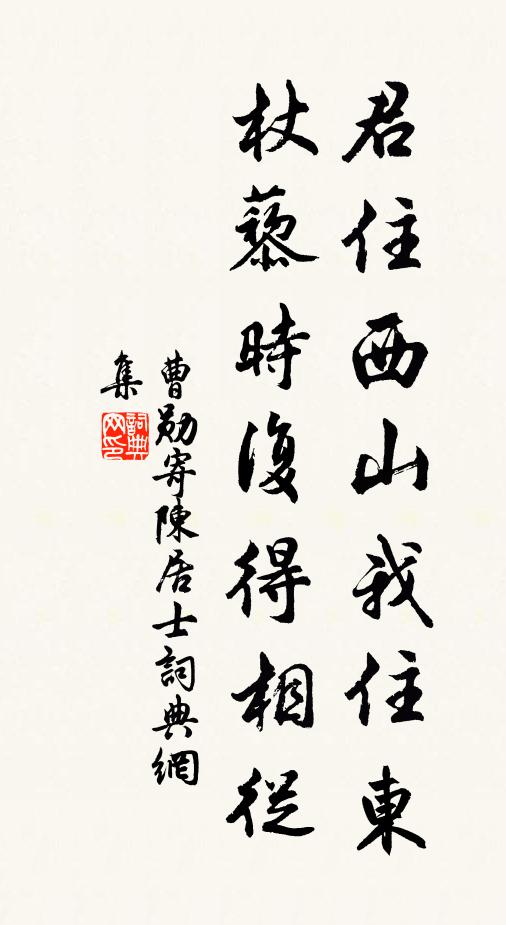 君住西山我住東
杖藜時復得相從
曹勛寄陳居士詞典網
集
詞典
网印